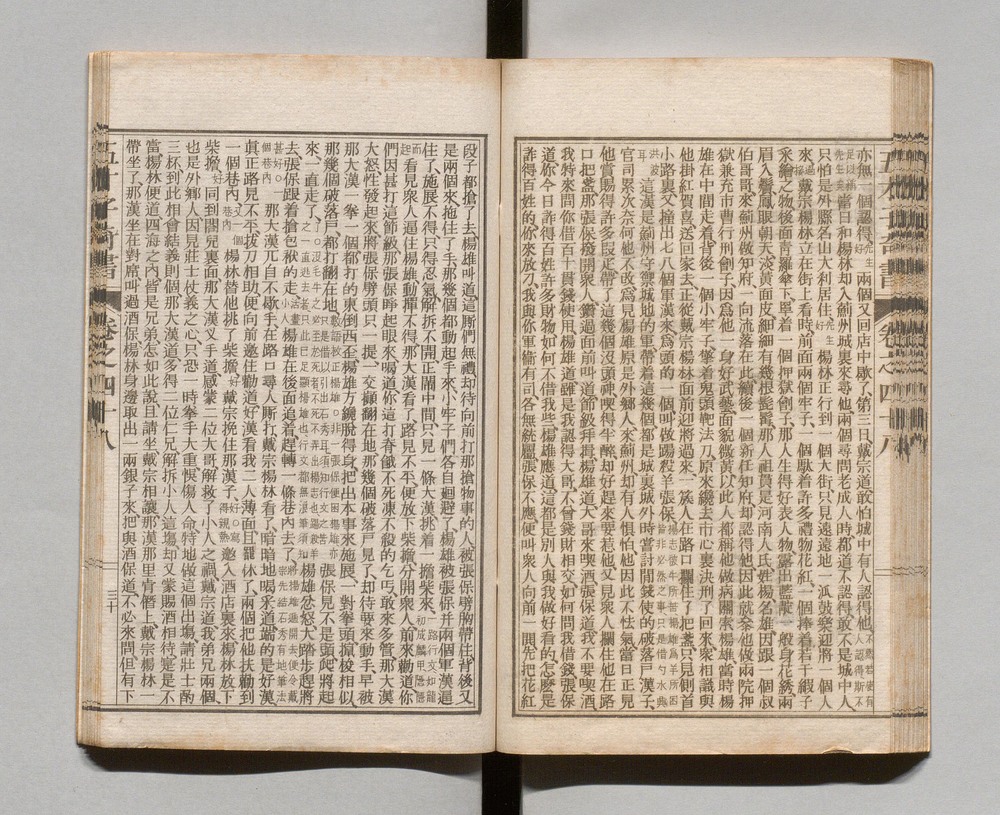 亦無一個認得先生好兩個又回店中歇了第三日戴宗道敢怕城中有人認得他
當日和楊林却入薊州城裏來尋他兩個尋問老成人時都道不認得敢不是城中人
只怕是外縣名山大利居住先生好楊林正行到一個大街只見遠遠地一派鼓樂迎將一個人
來戴宗楊林立在街上看時前面兩個小牢子一個馱着許多禮物花紅一個捧着若干緞子
采繒之物後面青羅傘下罩着一個押獄劊子那人生得好表人物露出藍靛般一身花綉兩
眉入鬢鳳眼朝天淡黃面皮細細有幾根髭髯那人祖貫是河南人氏姓楊名雄因跟一個叔
伯哥哥來薊州做知府一向流落在此續後一個新任知府却認得他因此就叅他做兩院押
獄兼充市曹行刑劊子因為他一身好武藝面貌微黃以此人都稱他做病關索楊雄當時楊
雄在中間走着背後一個小牢子擎着鬼頭靶法刀原來纔去市心裏決刑了回來衆相識與
他掛紅賀喜送回家去正從戴宗楊林面前迎將過來一簇人在路口攔住了把盞只見側首
小路裏又撞出七八個軍漢來為頭的一個叫做踢殺羊張保
這漢是薊州守禦城池的軍帶着這幾個都是城裏城外時嘗討閒錢使的破落戶漢子
官司累次奈何他不改為見楊雄原是外鄉人來薊州却有人懼怕他因此不怯氣當日正見
他賞賜得許多段疋帶了這幾個沒頭神喫得半醉却好趕來要惹他又見衆人攔住他在路
口把盞那張保撥開衆人鑽過面前叫道節級拜揖楊雄道大哥來喫酒張保道我不要喫酒
我特來問你借百十貫錢使用楊雄道雖是我認得大哥不曾錢財相交如何問我借錢張保
道你今日詐得百姓許多財物如何不借我些楊雄應道這都是別人與我做好看的怎麽是
詐得百姓的你來放刁我與你軍衛有司各無統屬張保不應便叫衆人向前一鬨先把花紅
段子都搶了去楊雄叫道這厮們無禮却待向前打那搶物事的人被張保劈胸帶住背後又
是兩個來拖住了手那幾個都動起手來小牢子們各自廻避了楊雄被張保并兩個軍漢逼
住了施展不得只得忍氣解拆不開正鬧中間只見一條大漢挑着一擔柴來
看見衆人逼住楊雄動撣不得那大漢看了路見不平便放下柴擔分開衆人前來勸道你
們因甚打這節級那張保睜起眼來喝道你這打脊餓不死凍不殺的乞丐敢來多管那大漢
大怒性發起來將張保劈頭只一提一交攧翻在地那幾個破落戶見了却待要來動手早被
那大漢一拳一個都打的東倒西歪楊雄方纔脫得身把出本事來施展一對拳頭攛梭相似
那幾個破落戶都打翻在地張保見不是頭爬將起
來一直走了楊雄忿怒大踏步趕將
去張保跟着搶包袱的走楊雄在後面追着趕轉一條巷內去了
那大漢兀自不歇手在路口尋人厮打戴宗楊林看了暗暗地喝采道端的是好漢
真正路見不平拔刀相助便向前邀住勸道好漢看我二人薄面且罷休了兩個把他扶勸到
一個巷內楊林替他挑了柴擔好戴宗挽住那漢手邀入酒店裏來楊林放下
柴擔好同到閣兒裏面那大漢叉手道感蒙二位大哥解救了小人之禍戴宗道我弟兄兩個
也是外鄉人因見壯士仗義之心只恐一時拳手太重悞傷人命特地做這個出塲請壯士酌
三杯到此相會結義則個那大漢道多得二位仁兄解拆小人這塲却又蒙賜酒相待寔是不
當楊林便道四海之內皆是兄弟怎如此說且請坐戴宗相讓那漢那里肯僭上戴宗楊林一
帶坐了那漢坐在對席叫過酒保楊林身邊取出一兩銀子來把與酒保道不必來問但有下
卷之四十八
卷之四十八
三十